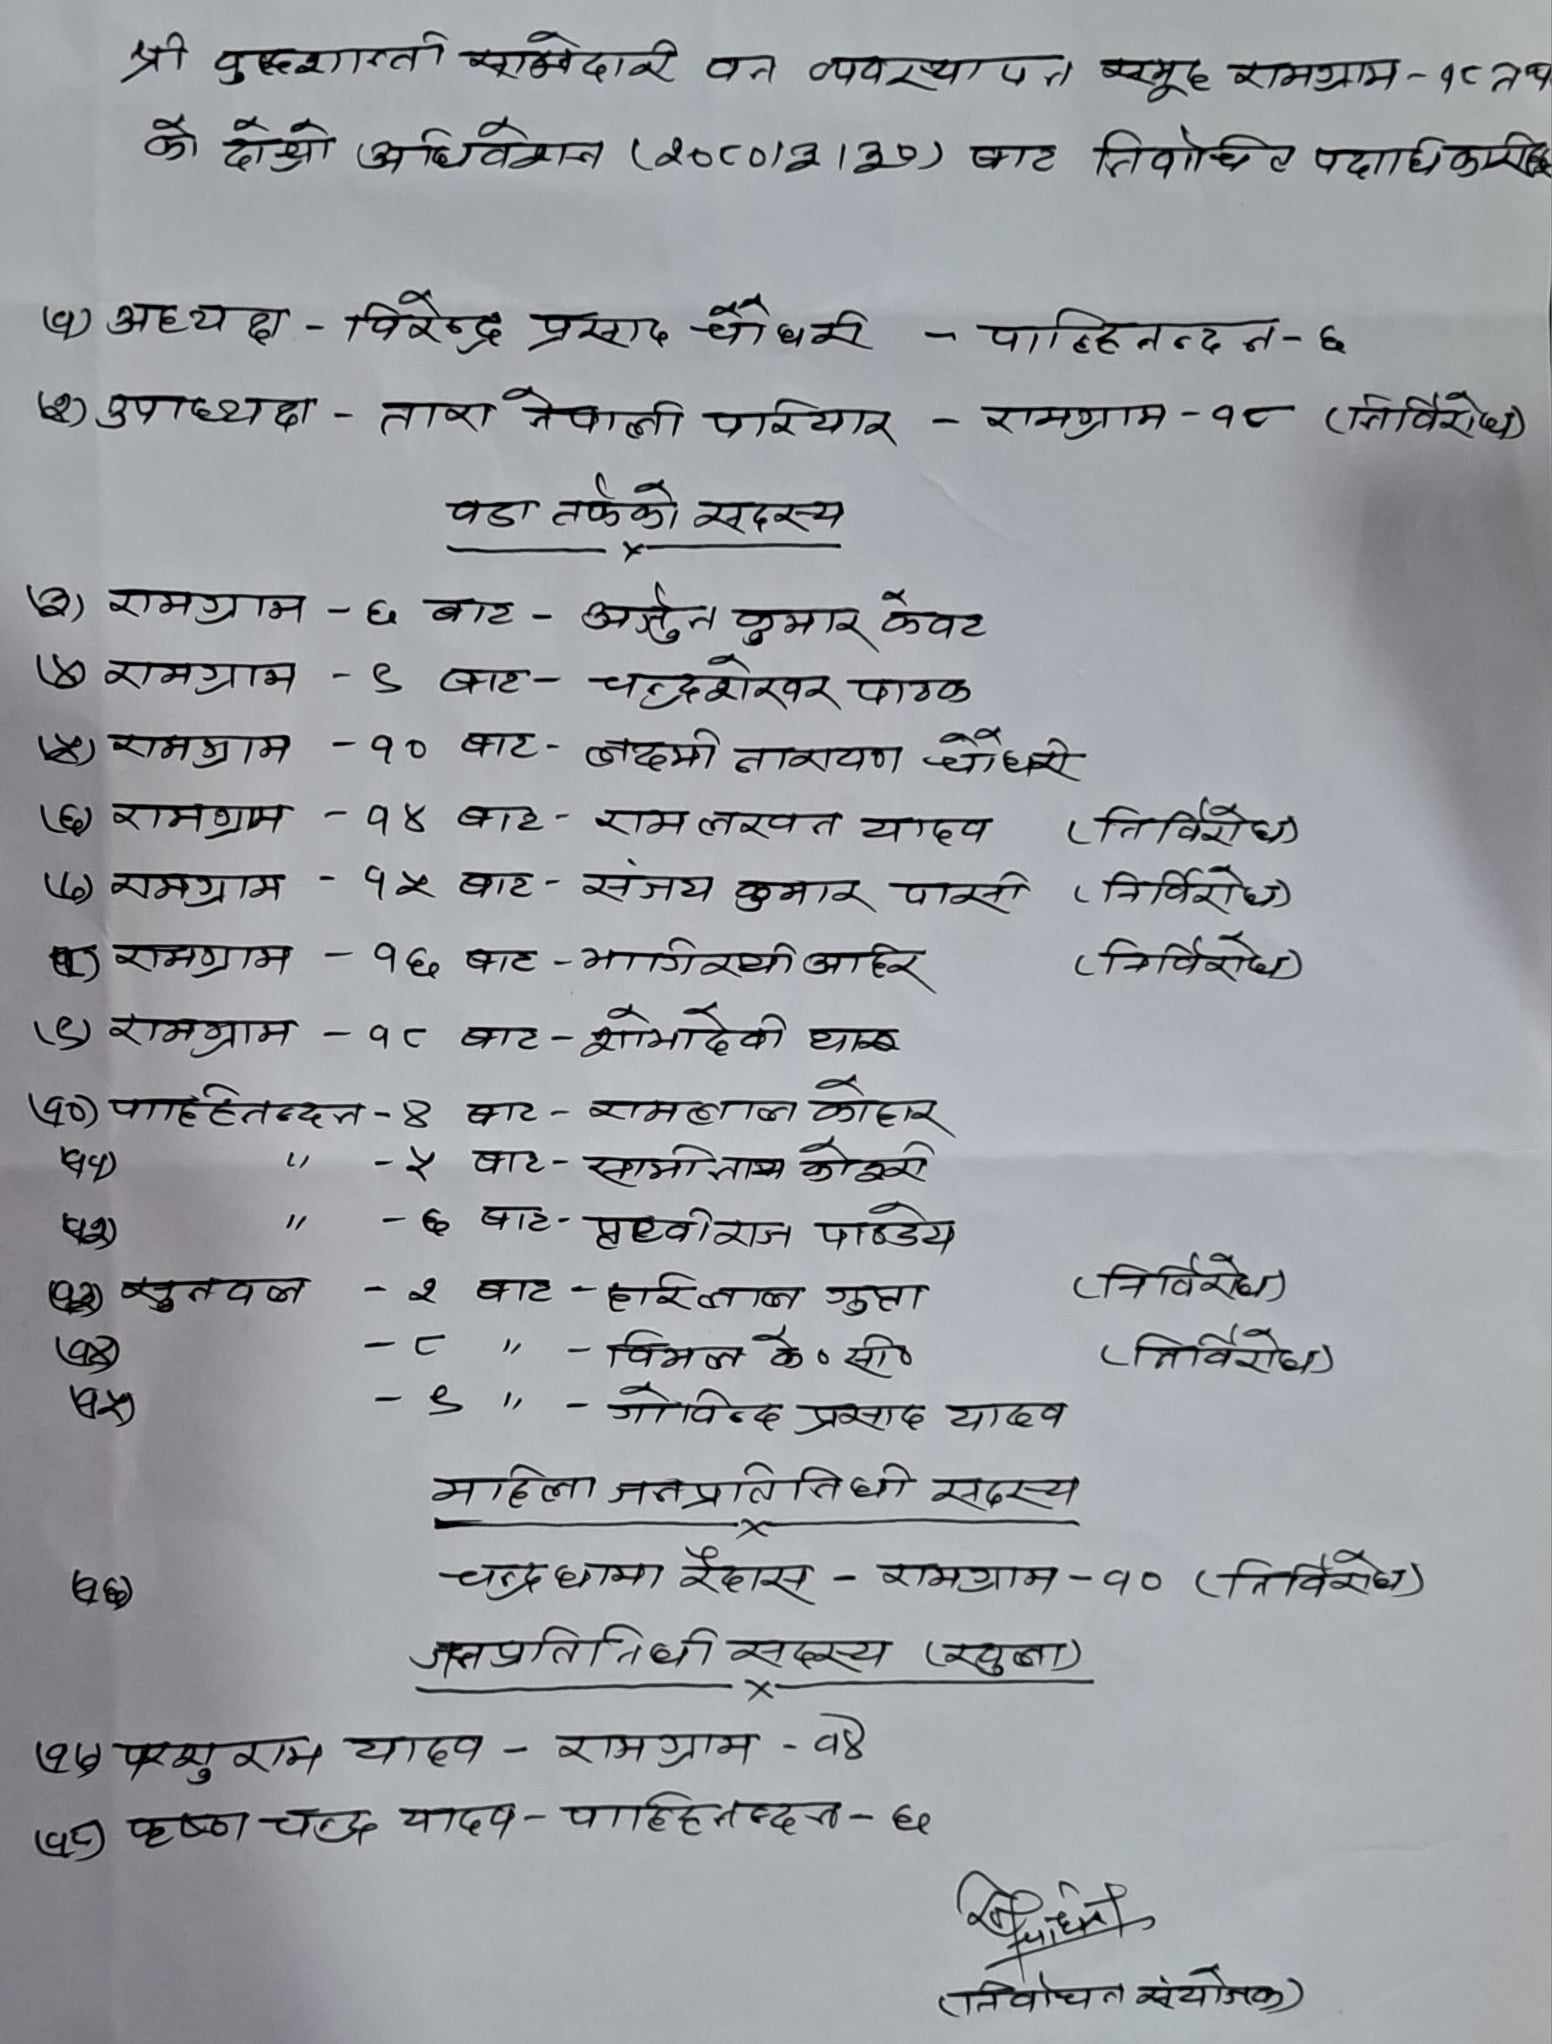 श्री वुद्धशान्ती साझेदारी वन व्यवस्थापन समूह रामग्राम - १८
को दोस्रो अधिवेशन (२०८०।३।३०) बाट निर्वाचित पदाधिकारीहरु
(१) अध्यक्ष - विरेन्द्र प्रसाद चौधरी - पाल्हिनन्दन - ६
(२) उपाध्यक्ष - तारा नेपाली परियार - रामग्राम - १८ (निर्विरोध)
वडा तर्फको सदस्य
(३) रामग्राम - ६ बाट - अर्जुन कुमार केवट
(४) रामग्राम - ९ बाट - चन्द्रशेखर पाठक
(५) रामग्राम - १० बाट - लक्ष्मी नारायण चौधरी
(६) रामग्राम - १४ बाट - राम लखन यादव (निर्विरोध)
(७) रामग्राम - १५ बाट - संजय कुमार पासी (निर्विरोध)
(८) रामग्राम - १६ बाट - भागिरथी अहिर (निर्विरोध)
(९) रामग्राम - १८ बाट - शोभादेवी थारू
(१०) पाल्हिनन्दन - ४ बाट - रामलाल कोहार
(११) " - ५ बाट - सामीनाथ कोइरी
(१२) " - ६ बाट - पृथ्वीराज पाण्डेय
(१३) सुनवल - २ बाट - हरिलाल गुप्ता (निर्विरोध)
(१४) - ८ " - विमल के० सी० (निर्विरोध)
(१५) - ९ " - गोविन्द प्रसाद यादव
महिला जनप्रतिनिधी सदस्य
(१६) चन्द्रधामा रैदास - रामग्राम - १० (निर्विरोध)
जनप्रतिनिधी सदस्य (खुला)
(१७) परसु राम यादव - रामग्राम - १४
(१८) कृष्ण चन्द्र यादव - पाल्हिनन्दन - ६
(निर्वाचन संयोजक)